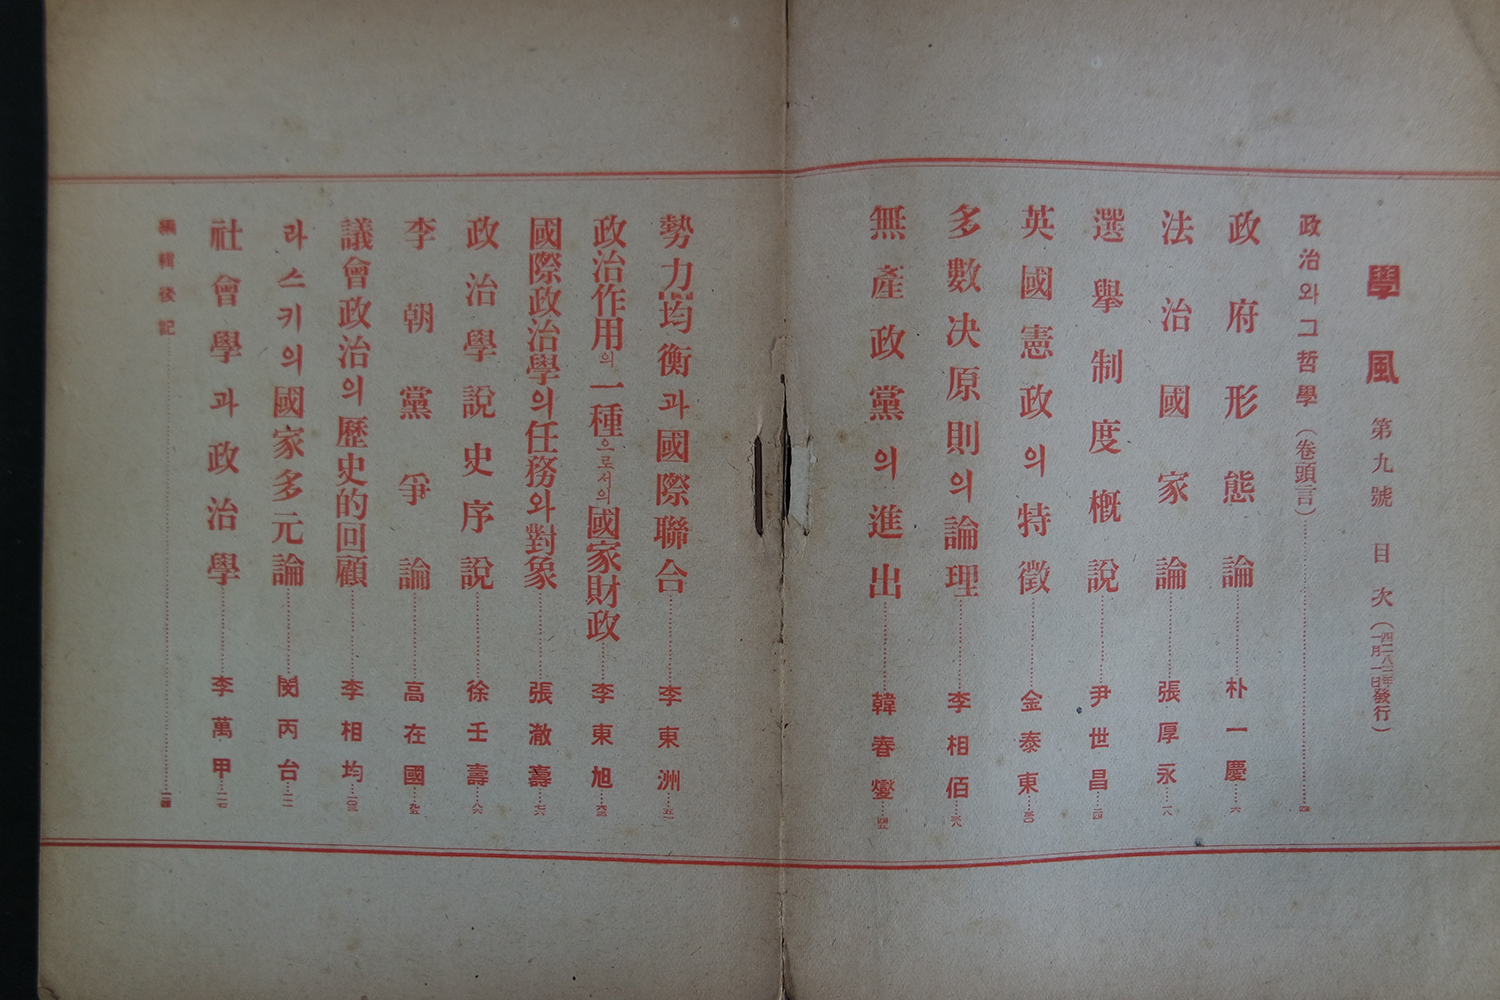 學風 第九號 目次（四二八三年一月一日發行）
政治와그哲學（卷頭言）…四
政府形態論…朴一慶…六
法治國家論…張厚永…一八
選擧制度槪說…尹世昌…二四
英國憲政의特徵…金泰東…三〇
多數決原則의論理…李相佰…三八
無產政黨의進出…韓春燮…四五
勢力均衡과國際聯合…李東洲…五一
政治作用의一種으로서의國家財政…李東旭…六三
國際政治學의任務와對象…張澈壽…七六
政治學說史序說…徐壬壽…八六
李朝黨爭論…高在國…九五
議會政治의歷史的回顧…李相均…一〇三
라스키의國家多元論…閔丙台…一一一
社會學과政治學…李萬甲…一一七
編輯後記